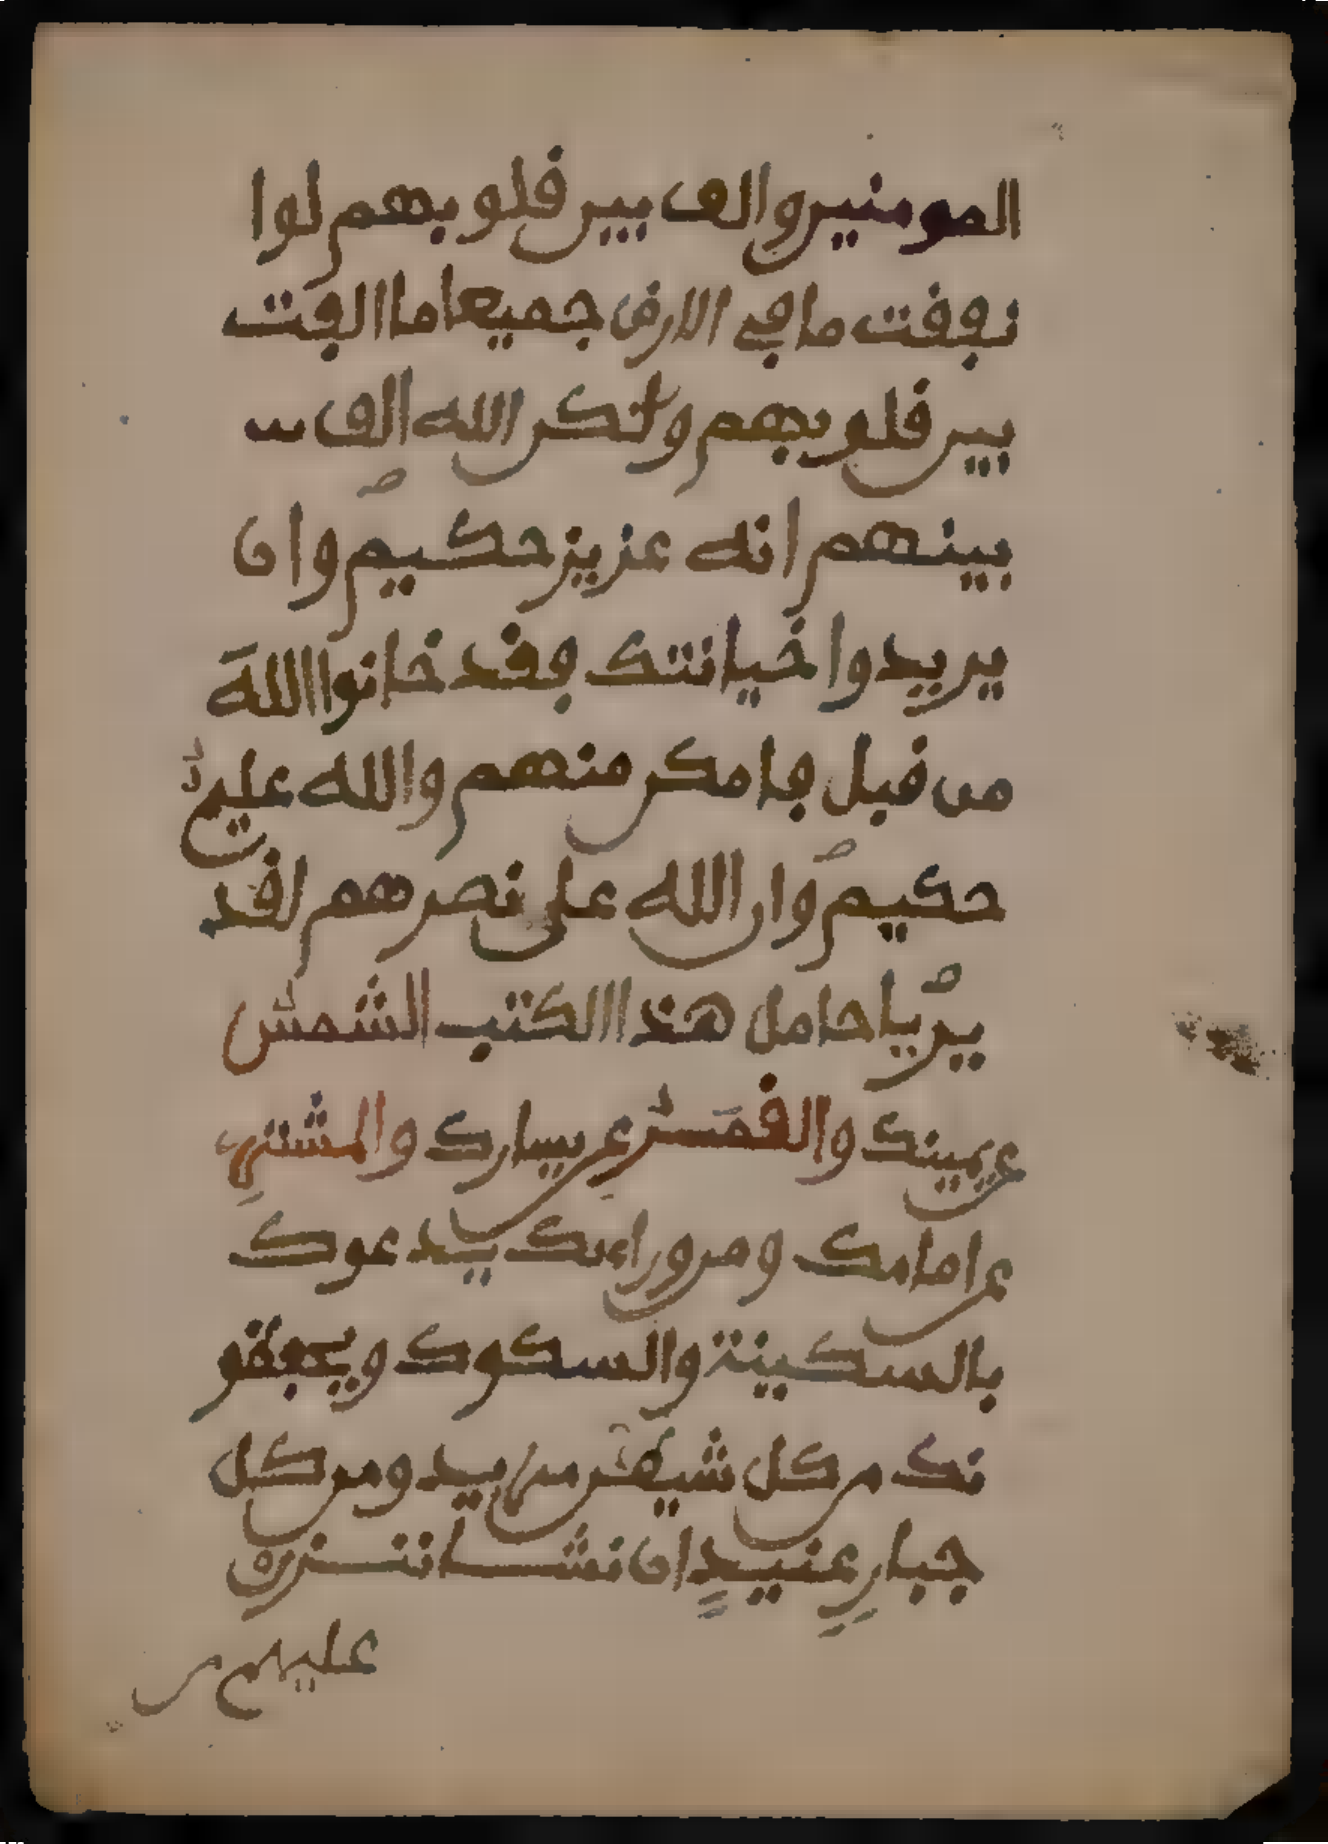 المومنين والف بين قلوبهم لوا
نفقت ما في الارض جميعا ما الفت
بين قلوبهم ولكن الله الف
بينهم انه عزيز حكيم وان
يريدوا خيانتك فقد خانوا الله
من قبل فامكن منهم والله عليم
حكيم وان الله على نصرهم لقد
ير يا حامل هذا الكتب الشمس
عن يمينك والقمر عن يسارك والمشتري
عن امامك ومن وراءك يدعوك
بالسكينة والسكوك ويحفظو
نك من كل شيطن مريد ومن كل
جبار عنيد ان نشا ننزل
عليهم من